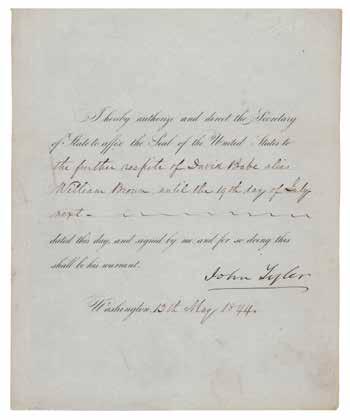 I hereby authorize and direct the Secretary
of State to affix the Seal of the United States to
the further respite of David Babe alias
William Brown until the 19th day of July
next
dated this day, and signed by me and for so doing this
shall be his warrant.
John Tyler
Washington, 13th May 1844.